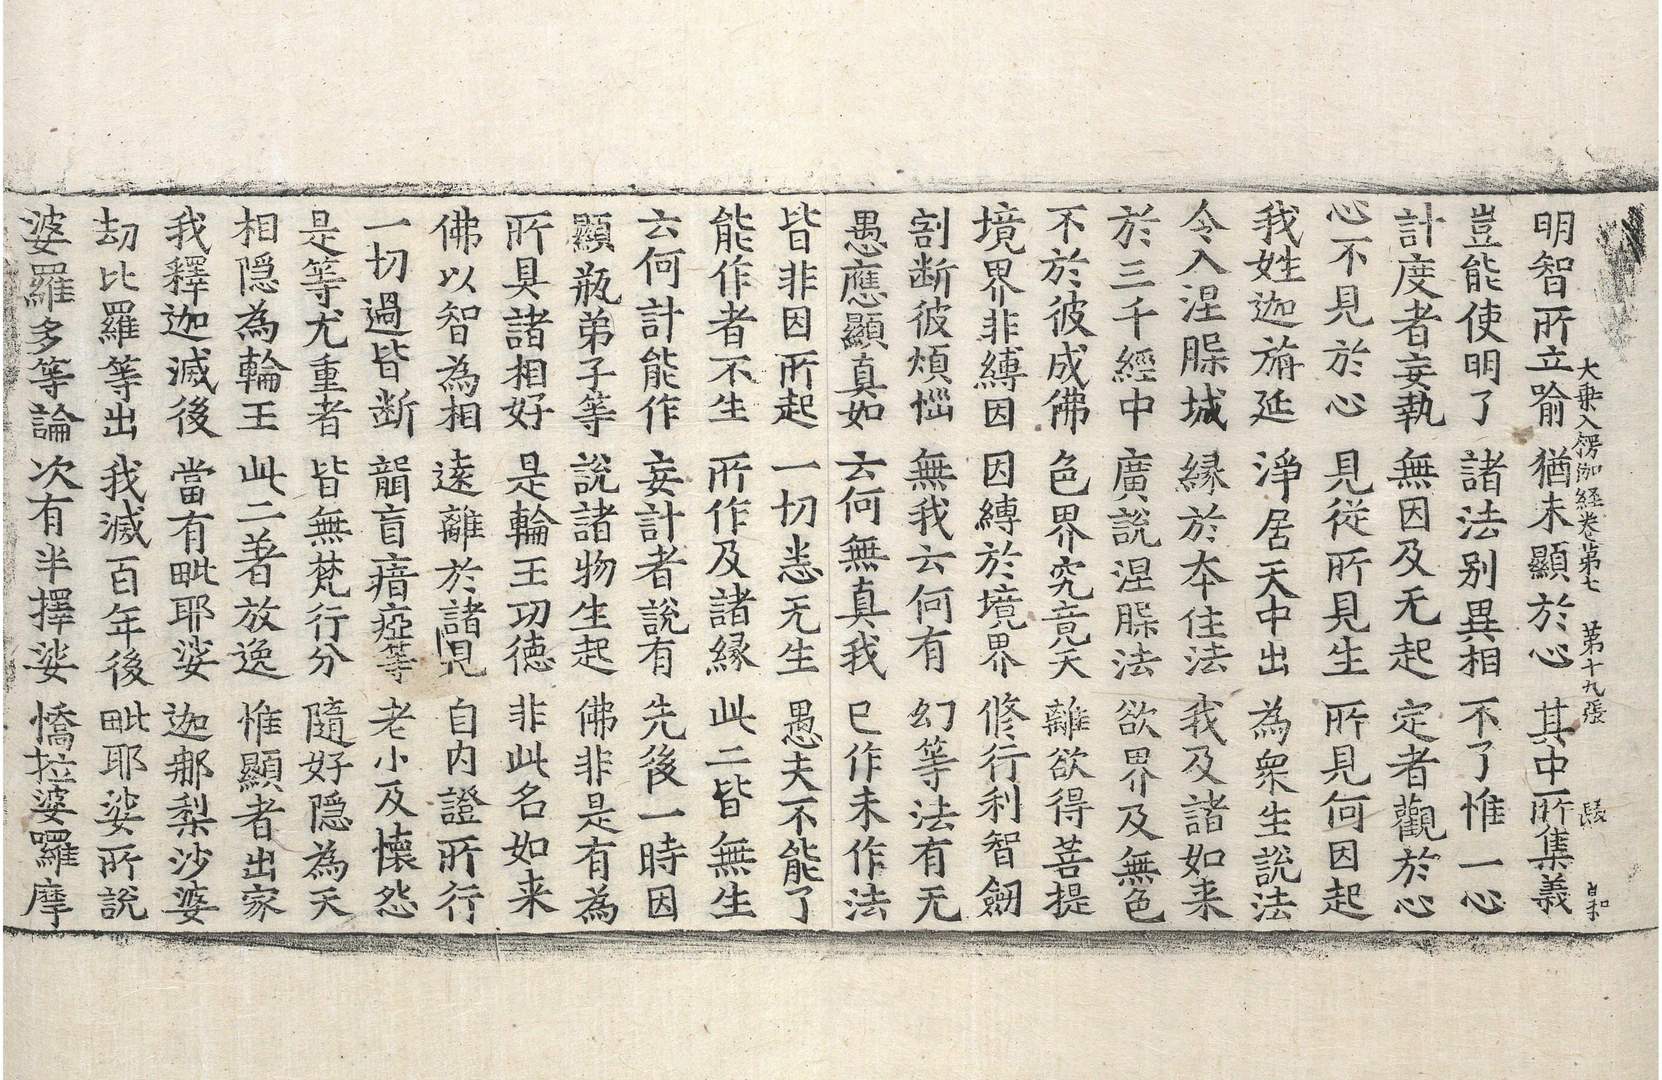 大乗入楞伽経卷第七　第十九張
明智所立喻　猶未顯於心　其中所集義
豈能使明了　諸法别異相　不了惟一心
計度者妄執　無因及无起　定者觀於心
心不見於心　見從所見生　所見何因起
我姓迦旃延　淨居天中出　為衆生說法
令入涅槃城　縁於夲住法　我及諸如来
於三千經中　廣說涅槃法　欲界及無色
不於彼成佛　色界究竟天　離欲得菩提
境界非縛因　因縛於境界　修行利智劒
割断彼煩惱　無我云何有　幻等法有无
愚應顯真如　云何無真我　已作未作法
皆非因所起　一切悉无生　愚夫不能了
能作者不生　所作及諸縁　此二皆無生
云何計能作　妄計者說有　先後一時因
顯瓶弟子等　說諸物生起　佛非是有為
所具諸相好　是輪王功德　非此名如来
佛以智為相　遠離於諸見　自内證所行
一切過皆断　聾盲瘖瘂等　老小及懷怨
是等尤重者　皆無梵行分　隨好隠為天
相隠為輪王　此二著放逸　惟顯者出家
我釋迦滅後　當有毗耶娑　迦那梨沙婆
劫比羅等出　我滅百年後　毗耶娑所說
婆羅多等論　次有半擇娑　憍拉婆囉摩